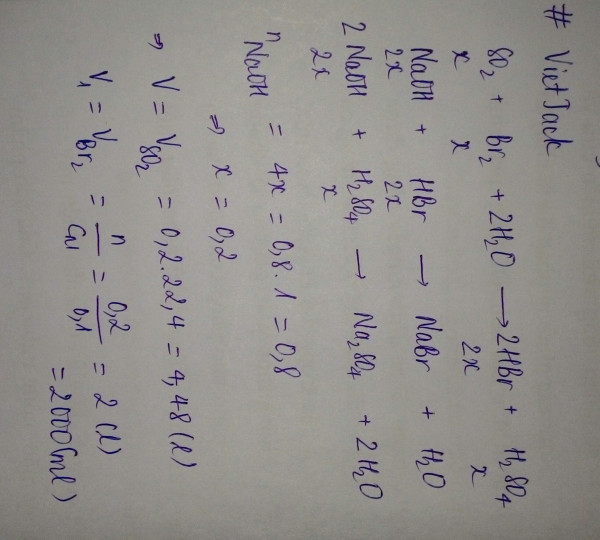 # VietJack
SO2 + Br2 + 2H2O → 2HBr + H2SO4
x x 2x x
NaOH + HBr → NaBr + H2O
2x 2x
2 NaOH + H2SO4 → Na2SO4 + 2H2O
2x x
nNaOH = 4x = 0,8.1 = 0,8
⇒ x = 0,2
⇒ V = VSO2 = 0,2.22,4 = 4,48 (l)
V1 = VBr2 = n/CM = 0,2/0,1 = 2 (l)
= 2000 (ml)